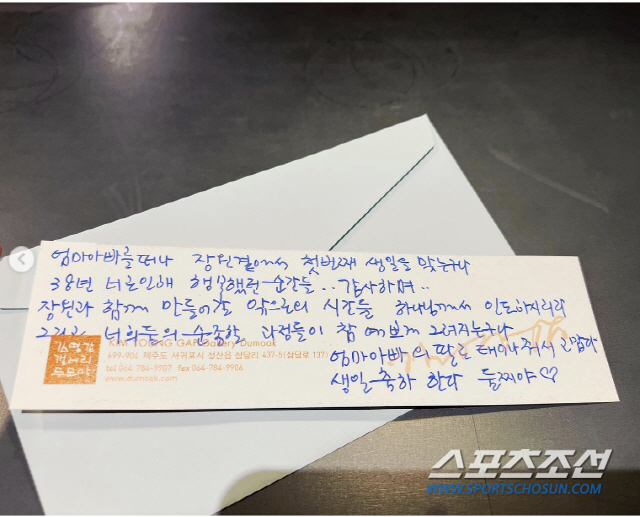 엄마아빠를 떠나 장원곁에서 첫번째 생일을 맞는구나
38년 너로인해 행복했던 순간들.. 감사하며..
장원과 함께 만들어갈 앞으로의 시간들 하나님께서 인도하시리라
그리고 너희들의 순종한 과정들이 참 예쁘게 그려지는구나
엄마아빠의 딸로 태어나줘서 고맙다
생일축하 한다 둘째야♡
김영갑
갤러리
두모악
KIM YOUNG GAP Gallery Dumoak
699-904 제주도 서귀포시 성산읍 삼달리 437-5(삼달로 137)
tel 064-784-9907 fax 064-784-9906
www.dumoak.com
스포츠조선
WWW.SPORTSCHOSUN.COM